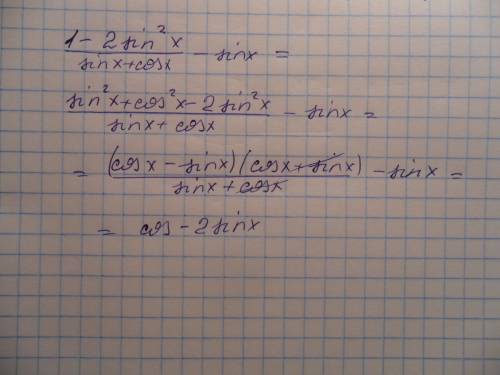 (1 - 2 sin²x)/(sinx + cosx) - sinx =
(sin²x + cos²x - 2 sin²x)/(sinx + cosx) - sinx =
= ((cosx - sinx)(cosx + sinx))/(sinx + cosx) - sinx =
= cos - 2 sinx